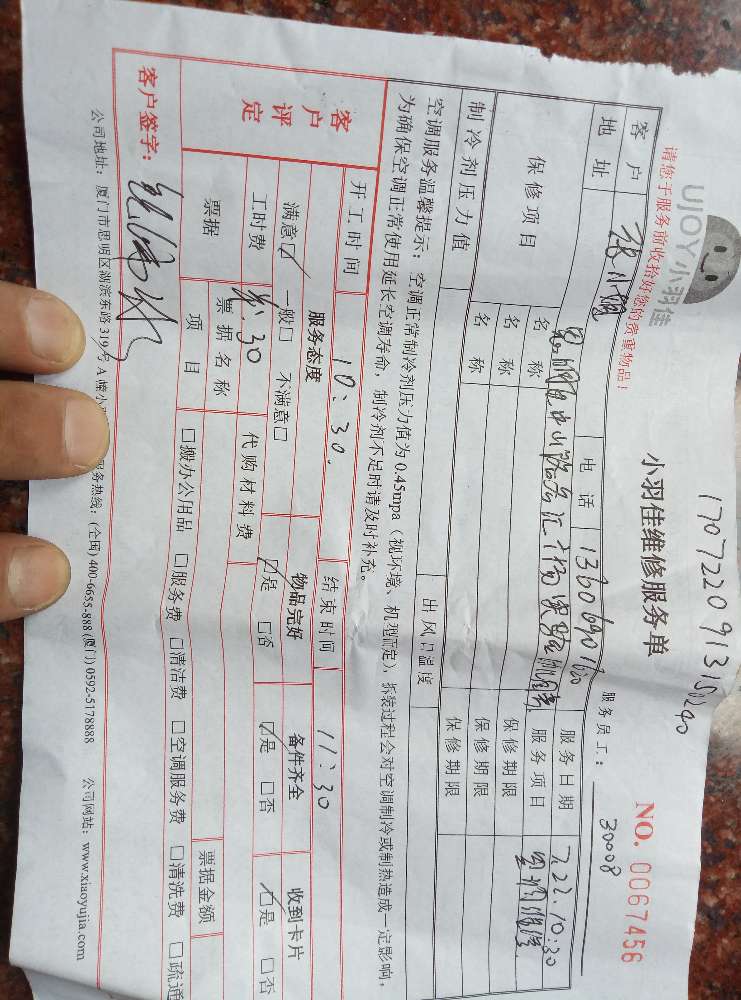 17072209131580240
UJOY小羽佳
小羽佳维修服务单
NO. 0067456
请您于服务前收拾好您的贵重物品！
服务员工： 30008
客户 电话 服务日期 7.22.10:30
地址 服务项目 空调维修
保修项目 名称 保修期限
名称 保修期限
名称 保修期限
制冷剂压力值 出风口温度
空调服务温馨提示：空调正常制冷剂压力值为0.45mpa（视环境、机型而定），拆装过程会对空调制冷或制热造成一定影响，
为确保空调正常使用延长空调寿命，制冷剂不足时请及时补充。
开工时间 10:30. 结束时间 11:30
客户评定
服务态度 物品完好 备件齐全 收到卡片
满意☑ 一般□ 不满意□ ☑是 □否 ☑是 □否 ☑是 □否
工时费 30 代购材料费
票据 票据名称 票据金额
项目 □搬办公用品 □服务费 □清洁费 □空调服务费 □清洗费 □疏通
客户签字：
公司地址：厦门市思明区湖滨东路319号A幢小 服务热线：(全国) 400-6655-888 (厦门) 0592-5178888 公司网站：www.xiaoyujia.com